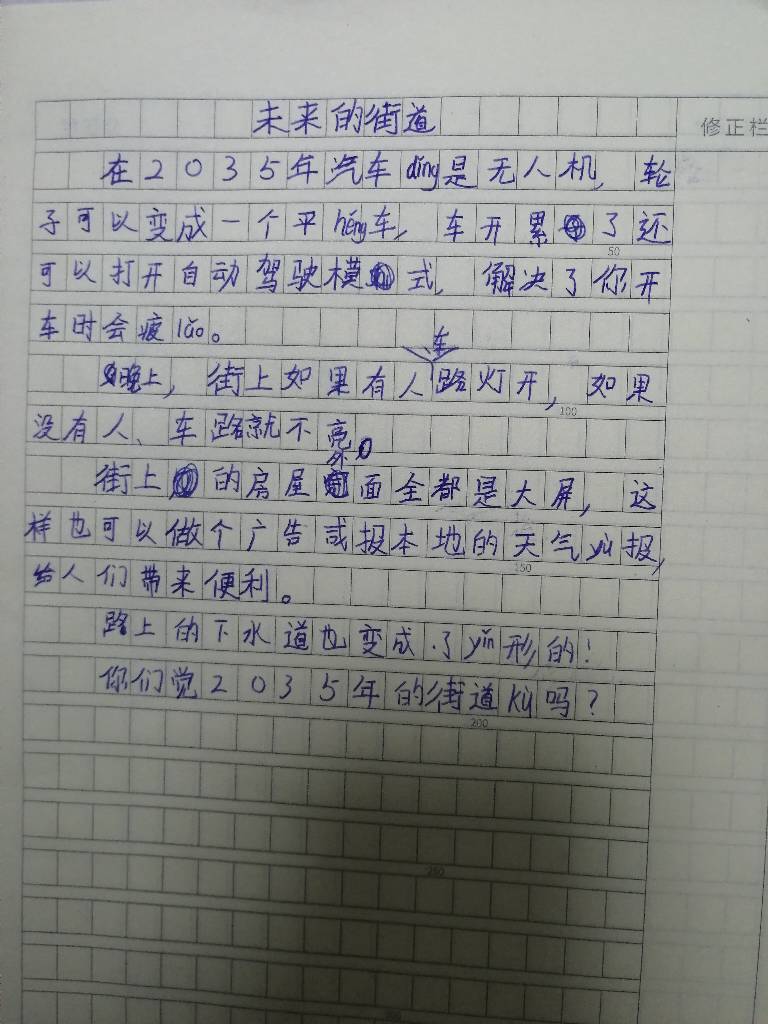 未来的街道
修正栏
在2035年汽车dǐng是无人机，轮
子可以变成一个平héng车，车开累了还
可以打开自动驾驶模式，解决了你开
车时会疲láo。
晚上，街上如果有人车路灯开，如果
没有人、车路就不亮。
街上的房屋外面全都是大屏，这
样也可以做个广告或报本地的天气yù报，
给人们带来便利。
路上的下水道也变成了yǐn形的！
你们觉2035年的街道kù吗？
50
100
150
200
250